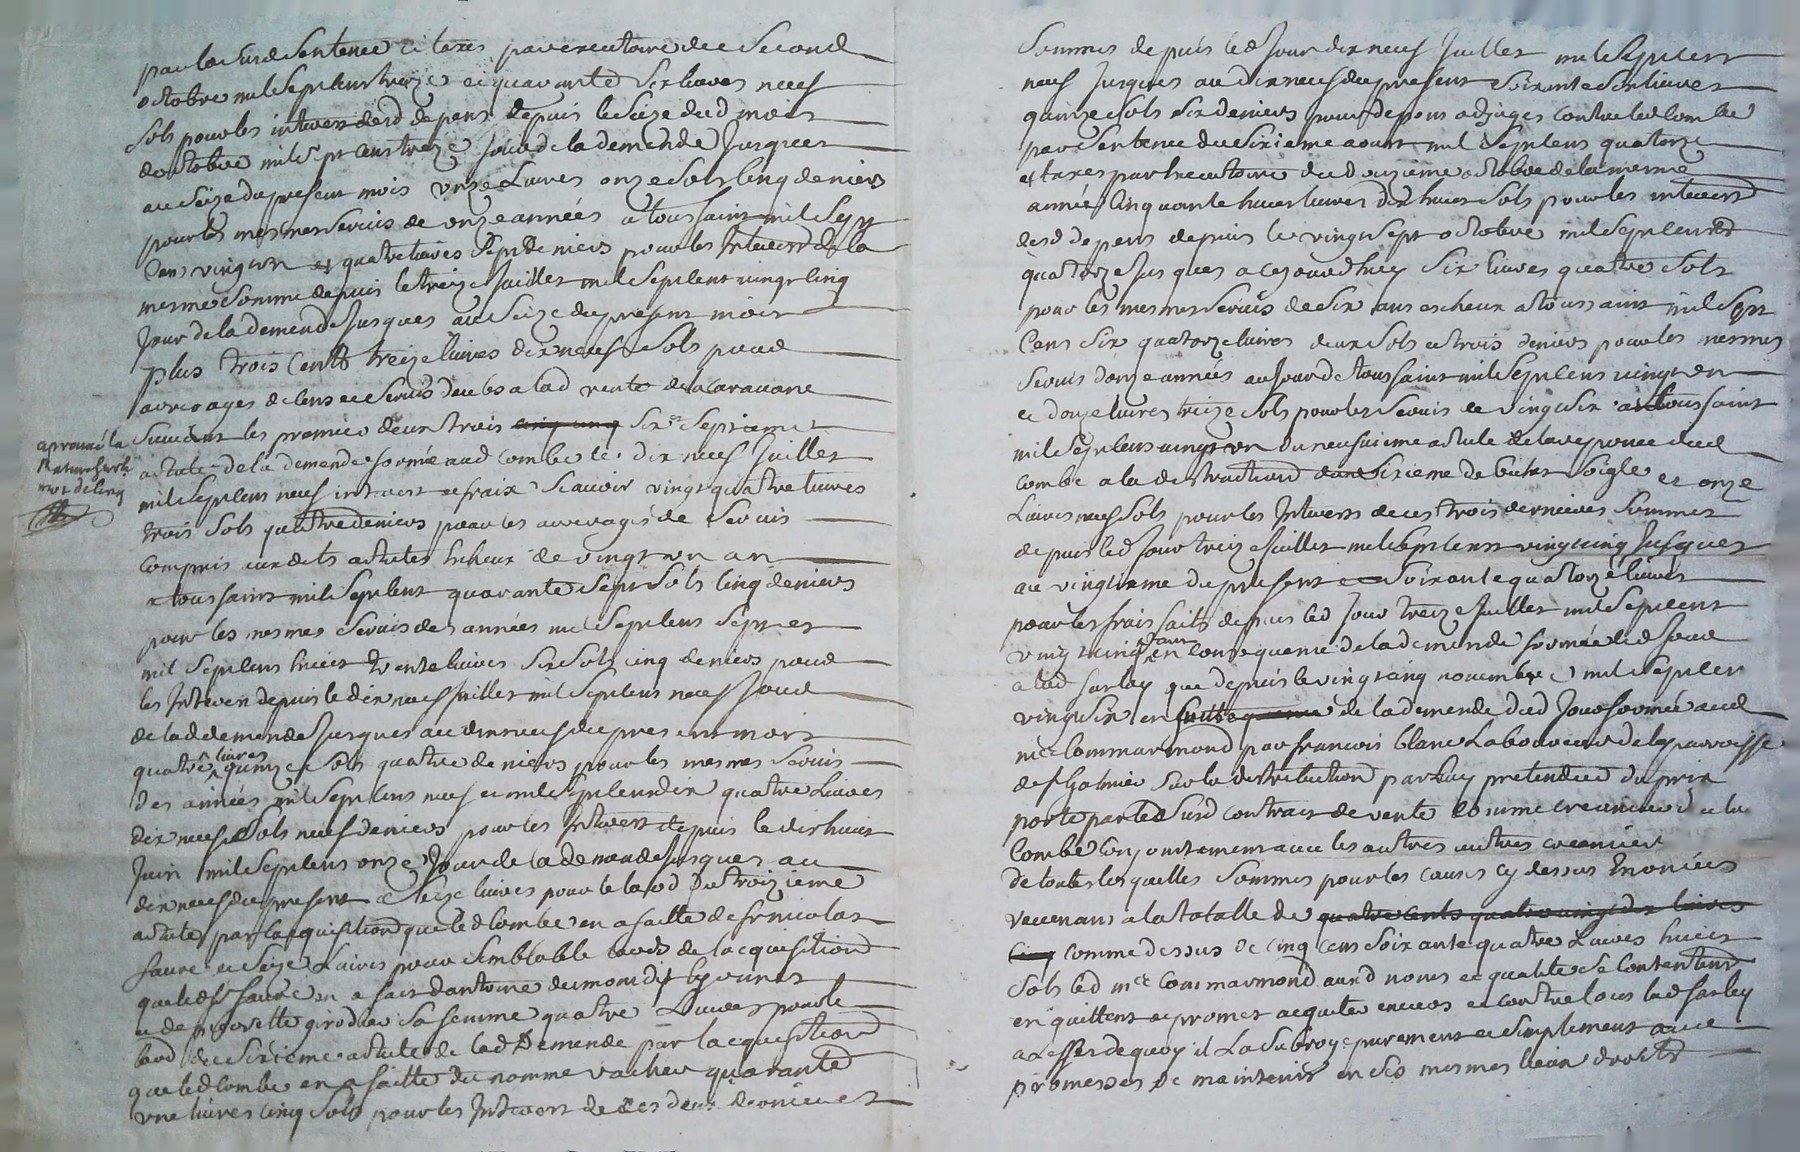 par la susd sentence et taxés par executoire du second
octobre mil sept cens treize et quarante six livres neuf
sols pour les interest desd depens depuis le seize dud mois
doctobre mil sept cens treize jour de la demende jusques
au seize du present mois onze livres onze sols cinq deniers
pour les mesmes servis de onze années a toussaint mil sept
cens vingt un et quatre livres sept deniers pour les interest de la
mesme somme depuis le treize juillet mil sept cent vingt cinq
jour de la demende jusques au seize du present mois
plus trois cents treize livres dix neuf sols pour
arrerages de cens et servis deubs a lad rente de la caravane
suivant les premier deux trois cinq cinq six et septieme
article de la demende formée aud combe le dix neuf juillet
mil sept cens neuf interest et frais scavoir vingt quatre livres
trois sols quatre deniers pour les arrerages de servis
compris aux dits articles echeux de vingt un an
a toussaint mil sept cent quarante sept sols cinq deniers
pour les mesmes servis des années mil sept cens sept et
mil sept cens huict trente livres six sols cinq deniers pour
les interest depuis le dix neuf juillet mil sept cens neuf jour
de lad demende jusques au dix neuf du present mois
quatre livres quinze sols quatre deniers pour les mesmes servis
des années mil sept cens neuf et mil sept cens dix quatre livres
dix neuf sols neuf deniers pour les interest depuis le dix huit
juin mil sept cens onze jour de la demende jusques au
dix neuf du present seize livres pour le laod du troizieme
article par lacquisition que led combe en a faitte de sr nicolas
faure et seize livres pour semblable laods de lacquisition
que led sr faure en a fait dantoine dumond
et de pierrette girodier sa femme quatre livres pour le
laod du sixieme article de lad demende par lacquisition
que led combe en a faitte du nomme vacher quarante
une livres cinq sols pour les interest de ces deux derniers
aprouvé la
rature sur le
mot de cinq
sommes depuis led jour dix neuf juillet mil sept cent
neuf jusques au dix neuf du present soixante six livres
quinze sols six deniers pour depens adjugés contre led combe
par sentence du sixieme aoust mil sept cens quatorze
et taxés par executoire du douzieme octobre de la mesme
année cinquante huict livres dix huict sols pour les interest
desd depens depuis le vingt sept octobre mil sept cens
quatorze jusques a ce jourdhuy six livres quatre sols
pour les mesmes servis de six ans escheux a toussaint mil sept
cens six quatorze livres deux sols et trois deniers pour les mesmes
servis donze années au jour de toussaint mil sept cens vingt un
et douze livres treize sols pour les servis de vingt six a toussaint
mil sept cens vingt un du neufvieme article de la reponce dud
combe a la destraction du sixieme de bichet soigle et onze
livres neuf sols pour les interests de ces trois dernieres sommes
depuis led jour treize juillet mil sept cens vingt cinq jusques
au vingtieme du present et soixante quatorze livres
pour les frais faits depuis led jour treize juillet mil sept cent
vingt cinq tant en consequence de la demende formée led jour
a lad sarley que depuis le vingt cinq novembre mil sept cen
vingt six en suitte de la demende dud jour formée aud
me commarmond par francois blanc laboureur de la parroisse
de st galmier sur la distribution par luy pretendue du prix
porté par led susd contract de vente comme creancier dud
combe conjointement avec les autres creanciers
de touttes lesquelles sommes pour les causes cy dessus enoncées
revenans a la totalle de quatre cents quatre vingt dix livres
cinq comme dessus de cinq cens soixante quatre livres huict
sols led me commarmond aud nom et qualité se contente
en quittent et promet acquiter envers et contre tous lad sarley
a leffet de quoy il la subroge purement et simplement avec
promesses de maintenir en ses mesmes lieu droits